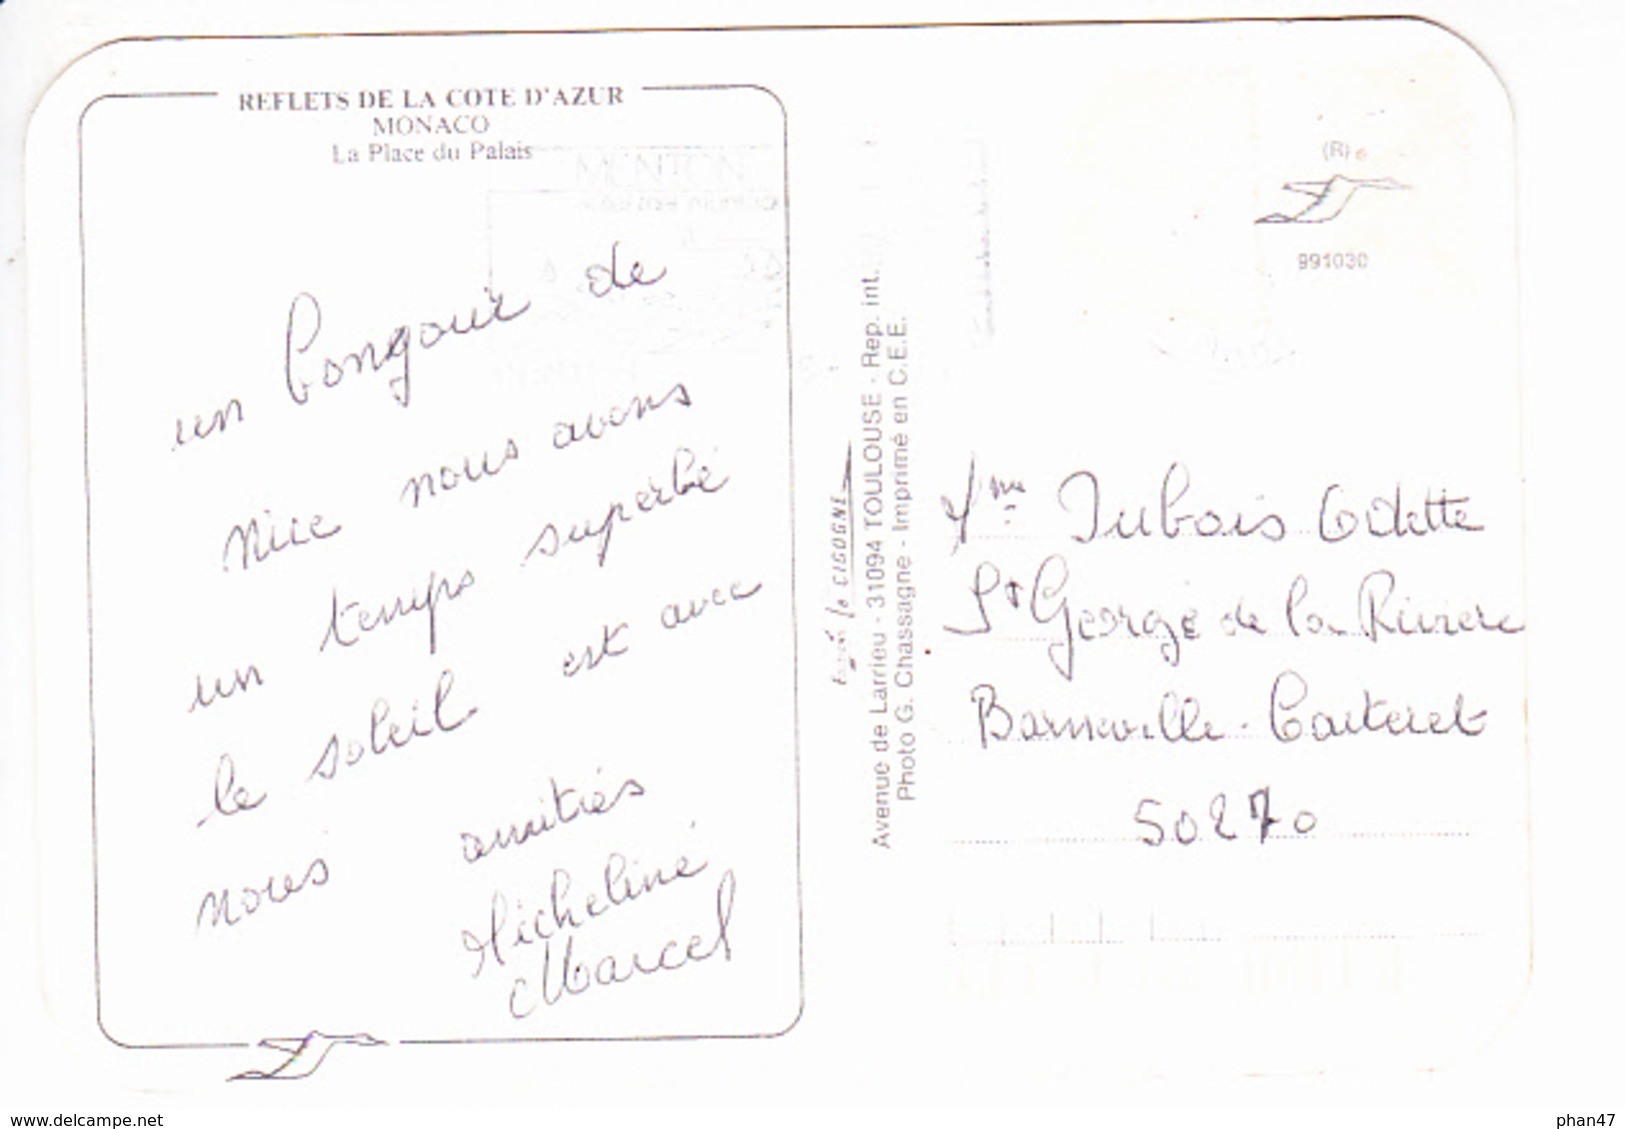 REFLETS DE LA COTE D'AZUR
MONACO
La Place du Palais
MENTON
un bongour de
Nice nous avons
un temps superbe
le soleil est avec
nous amitiés
Micheline
Marcel
la CIGOGNE
Avenue de Larrieu - 31094 TOULOUSE - Rep. int.
Photo G. Chassagne - Imprimé en C.E.E.
(R)
991030
Mme Dubois Odette
St George de la Riviere
Barneville-Carteret
50270
www.delcampe.net
phan47